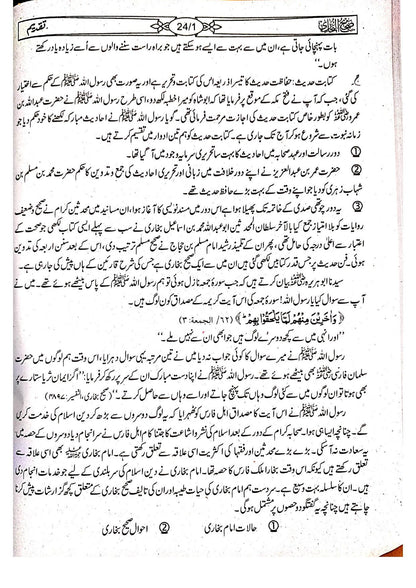 تقدیم
24/1
صحیح البخاری
بات پہنچائی جاتی ہے، ان میں سے بہت سے ایسے ہو سکتے ہیں جو براہ راست سننے والوں سے اُسے زیادہ یاد رکھتے
ہوں۔
کتابت حدیث: حفاظت حدیث کا تیسرا ذریعہ اس کی کتابت و تحریر ہے اور یہ صورت بھی رسول اللہ ﷺ کے حکم سے اختیار
کی گئی، جب کہ آپ نے فتح مکہ کے موقع پر فرمایا تھا کہ ابوشاہ کو میرا خطبہ لکھ دو، اسی طرح رسول اللہ ﷺ نے حضرت عبداللہ بن
عمرو کو بطور خاص کتابت حدیث کی اجازت مرحمت فرمائی تھی۔ گویا رسول اللہ ﷺ نے احادیث مبارکہ لکھنے کا خود حکم دیا جو
زمانۂ نبوت سے شروع ہو کر آج تک جاری ہے۔ کتابت حدیث کو ہم تین ادوار میں تقسیم کرتے ہیں۔
① دور رسالت اور عہد صحابہ میں احادیث کا بہت سا تحریری سرمایہ وجود میں آ گیا تھا۔
② حضرت عمر بن عبدالعزیز نے اپنے دور خلافت میں زبانی اور تحریری احادیث کی جمع و تدوین کا حکم حضرت محمد بن مسلم بن
شہاب زہری کو دیا جو اپنے وقت کے بہت بڑے حافظ حدیث تھے۔
③ یہ دور چوتھی صدی کے خاتمہ تک پھیلا ہوا ہے اس دور میں مسند نویسی کا آغاز ہوا، ان مسانید میں محدثین کرام نے صحیح و ضعیف
روایات کو بلا امتیاز جمع کیا بالآخر سلطان المحدثین ابو عبداللہ محمد بن اسماعیل بخاری نے سب سے پہلے ایسی کتاب لکھی جو صحت کے
اعتبار سے اعلیٰ درجہ کی حامل تھی، پھر ان کے تلمیذ رشید امام مسلم بن حجاج نے صحیح مسلم ترتیب دی، اس کے بعد سنن اربعہ کی تدوین
ہوئی۔ فن حدیث پر جس قدر کتابیں لکھی گئی ہیں ان میں سے ایک صحیح بخاری ہے جس کی شرح قارئین کے ہاں پیش کی جا رہی ہے۔
سیدنا ابو ہریرہ بیان کرتے ہیں کہ جب سورۂ جمعہ نازل ہوئی تو ہم رسول اللہ ﷺ کے پاس بیٹھے ہوئے تھے۔ میں نے
آپ سے سوال کیا یا رسول اللہ! سورۂ جمعہ کی اس آیت کریمہ کے مصداق کون لوگ ہیں۔
﴿وَآخَرِينَ مِنْهُمْ لَمَّا يَلْحَقُوا بِهِمْ﴾ (۶۲/ الجمعة: ۳)
"اور انہی میں سے کچھ دوسرے لوگ ہیں جو ابھی ان سے نہیں ملے۔"
رسول اللہ ﷺ نے میرے سوال کا کوئی جواب نہ دیا میں نے تین مرتبہ یہی سوال دہرایا، اس وقت ہم لوگوں میں حضرت
سلمان فارسی بھی بیٹھے ہوئے تھے۔ رسول اللہ ﷺ نے اپنا دست مبارک ان کے سر پر رکھ کر فرمایا: "اگر ایمان ثریا ستارے پر
بھی ہوتا تو ان لوگوں میں سے کئی لوگ وہاں تک پہنچ جاتے اور اسے وہاں سے حاصل کرتے۔" (صحیح بخاری، التفسیر: ۴۸۹۷)
رسول اللہ ﷺ نے اس آیت کا مصداق اہل فارس کو ٹھہرایا کہ یہ لوگ دوسروں سے بڑھ کر دین اسلام کی خدمت کریں
گے۔ چنانچہ ایسا ہی ہوا۔ صحابہ کرام کے دور کے بعد اسلام کی نشر و اشاعت کا جتنا کام اہل فارس نے سرانجام دیا دوسروں کے حصہ میں
یہ سعادت نہ آ سکی۔ بڑے بڑے محدثین اور فقہا کی اکثریت اسی علاقہ سے تعلق رکھتی ہے۔ امام بخاری بھی اسی علاقہ سے
تعلق رکھتے ہیں کیونکہ اس وقت بخارا ملک فارس کا حصہ تھا۔ امام بخاری نے دین اسلام کی سربلندی کے لیے جو خدمات انجام دی
ہیں۔ ان کا سلسلہ بہت وسیع ہے۔ سردست ہم امام بخاری کی حیات طیبہ اور ان کی تالیف صحیح بخاری کے متعلق کچھ گزارشات پیش کرنا
چاہتے ہیں چنانچہ یہ گفتگو دو حصوں پر مشتمل ہو گی۔
① حالات امام بخاری ② احوال صحیح بخاری